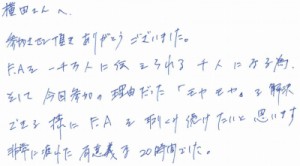 権田さんへ
参加させて頂き ありがとうございました。
F.Aを一千万人に伝えられる千人になる為、
そして今回参加の理由だった「モヤモヤ」を解決
できる様にF.Aを取りくみ続けたいと思います
非常に疲れた有意義な20時間でした。